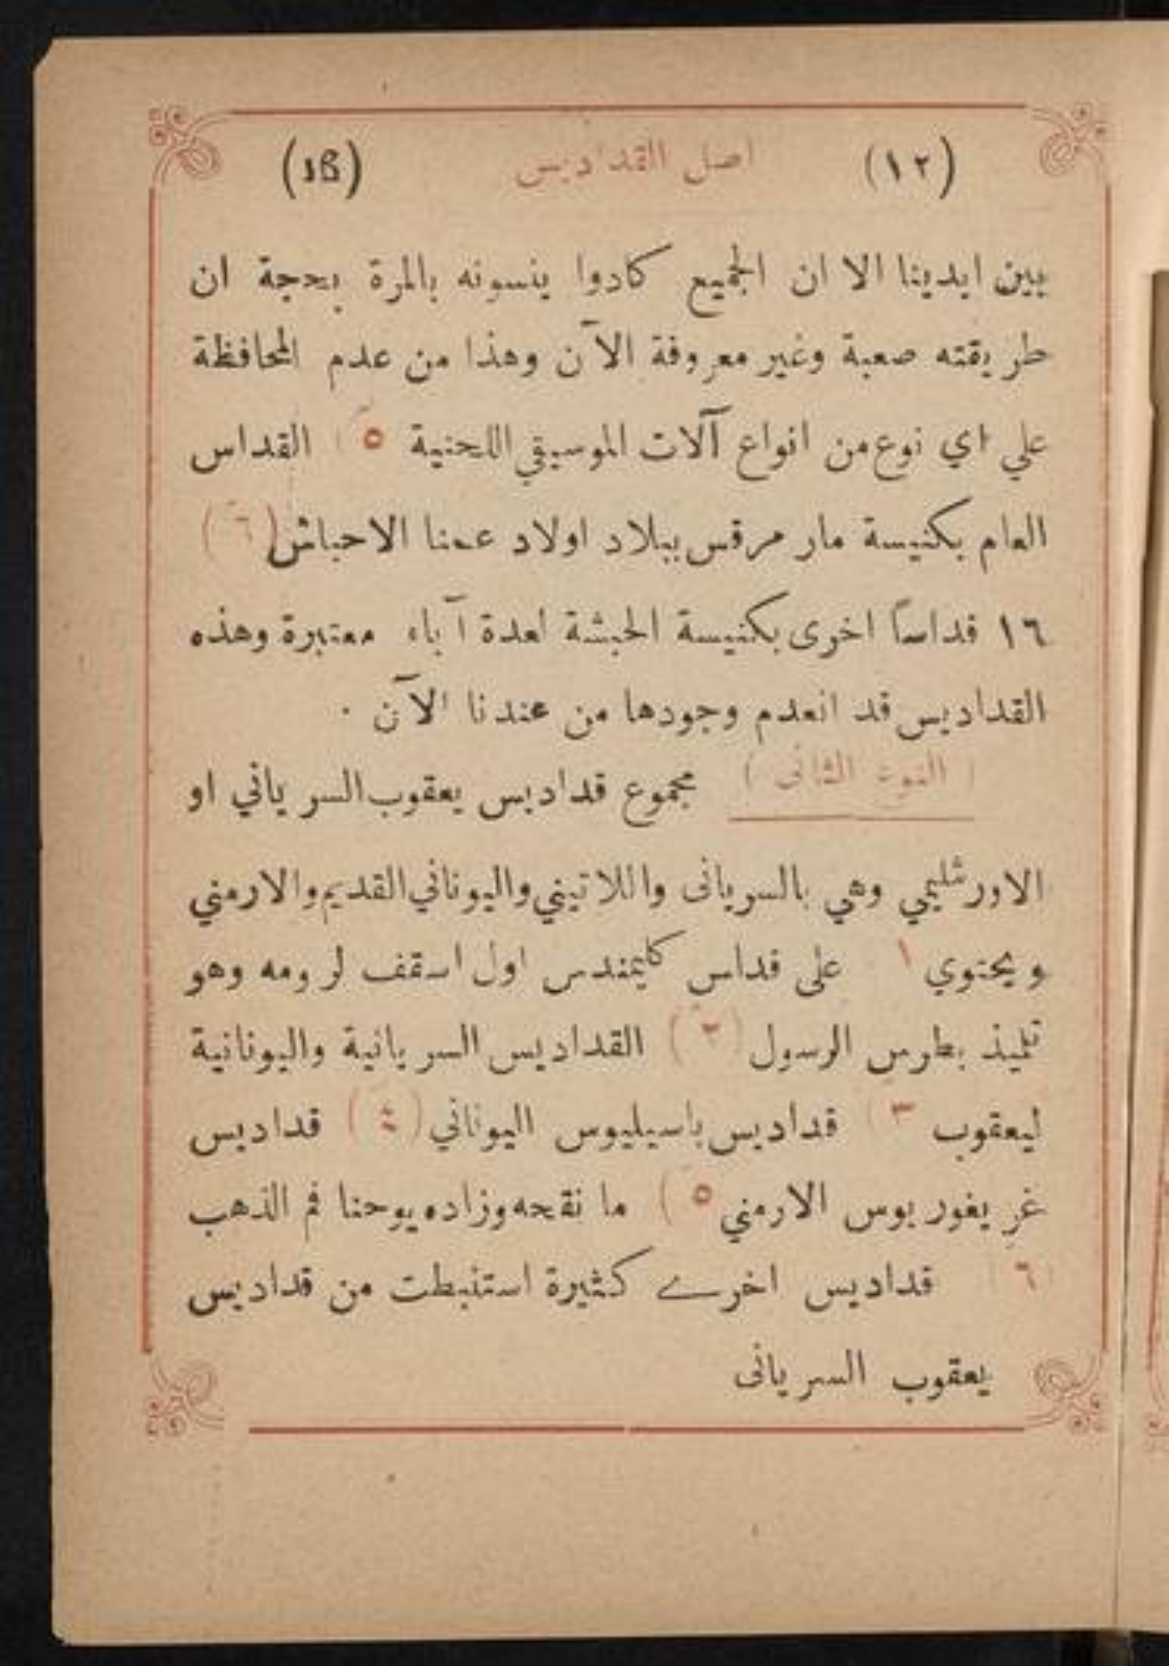 (١٢) اصل القداديس (ⲓⲃ)
بين ايدينا الا ان الجميع كادوا ينسونه بالمرة بحجة ان
طريقته صعبة وغير معروفة الآن وهذا من عدم المحافظة
علي اي نوع من انواع آلات الموسيقي اللحنية ٥) القداس
العام بكنيسة مار مرقس ببلاد اولاد عمنا الاحباش (٦)
١٦ قداساً اخرى بكنيسة الحبشة لعدة آباء معتبرة وهذه
القداديس قد انعدم وجودها من عندنا الآن .
(النوع الثانى) مجموع قداديس يعقوب السرياني او
الاورشليمي وهي بالسريانى واللاتيني واليوناني القديم والارمني
ويحتوي ١ على قداس كليمندس اول اسقف لرومه وهو
تلميذ بطرس الرسول (٢) القداديس السريانية واليونانية
ليعقوب ٣) قداديس باسيليوس اليوناني (٤) قداديس
غريغوريوس الارمني ٥) ما نقحه وزاده يوحنا فم الذهب
(٦ قداديس اخرے كثيرة استنبطت من قداديس
يعقوب السريانى